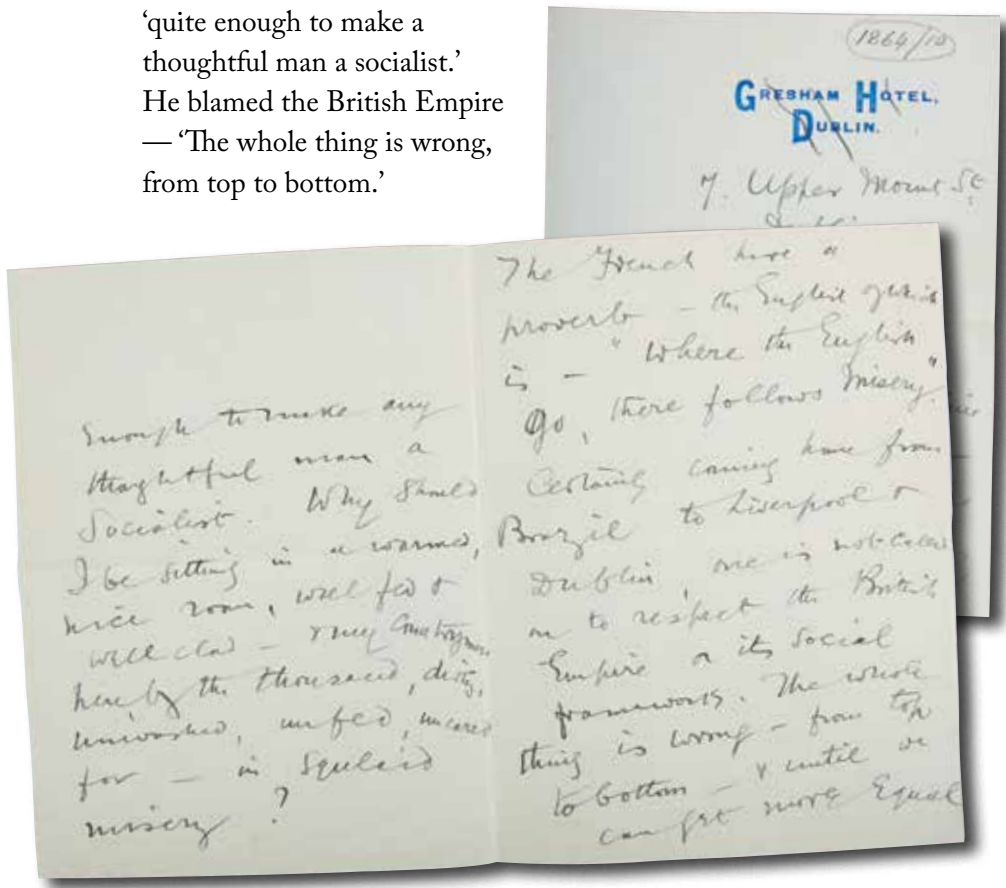 ‘quite enough to make a
thoughtful man a socialist.’
He blamed the British Empire
— ‘The whole thing is wrong,
from top to bottom.’
1864/10
GRESHAM HOTEL,
DUBLIN.
7. Upper Mount St
Enough to make any
thoughtful man a
Socialist. Why should
I be sitting in a warmed,
nice room, well fed &
well clad – & my Countrymen
here by the thousand, dirty,
unwashed, unfed, uncared
for – in Squalid
misery?
The French have a
proverb – the English of which
is – "Where the English
Go, there follows misery"
Certainly coming home from
Brazil to Liverpool &
Dublin, one is not called
on to respect the British
Empire or its Social
framework. The whole
thing is wrong – from top
to bottom – & until we
can get more Equal